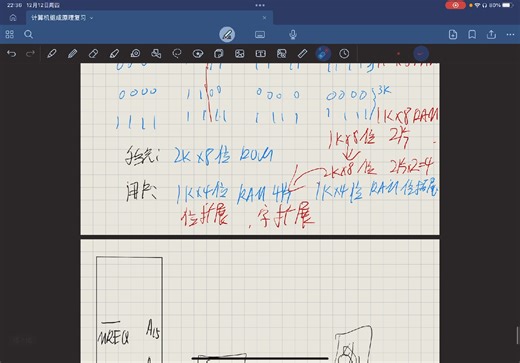 22:36 12月12日周四
80%
计算机组成原理复习
0000 1100 0000 0000 } 3K
1111 1111 1111 1111 1K×8RAM
1K×8位 2片
系统: 2K×8位 ROM 2K×8位 2片×2=4
用户: 1K×4位 RAM 4片 1K×4位 RAM 位扩展
位扩展, 字扩展
MREQ A15